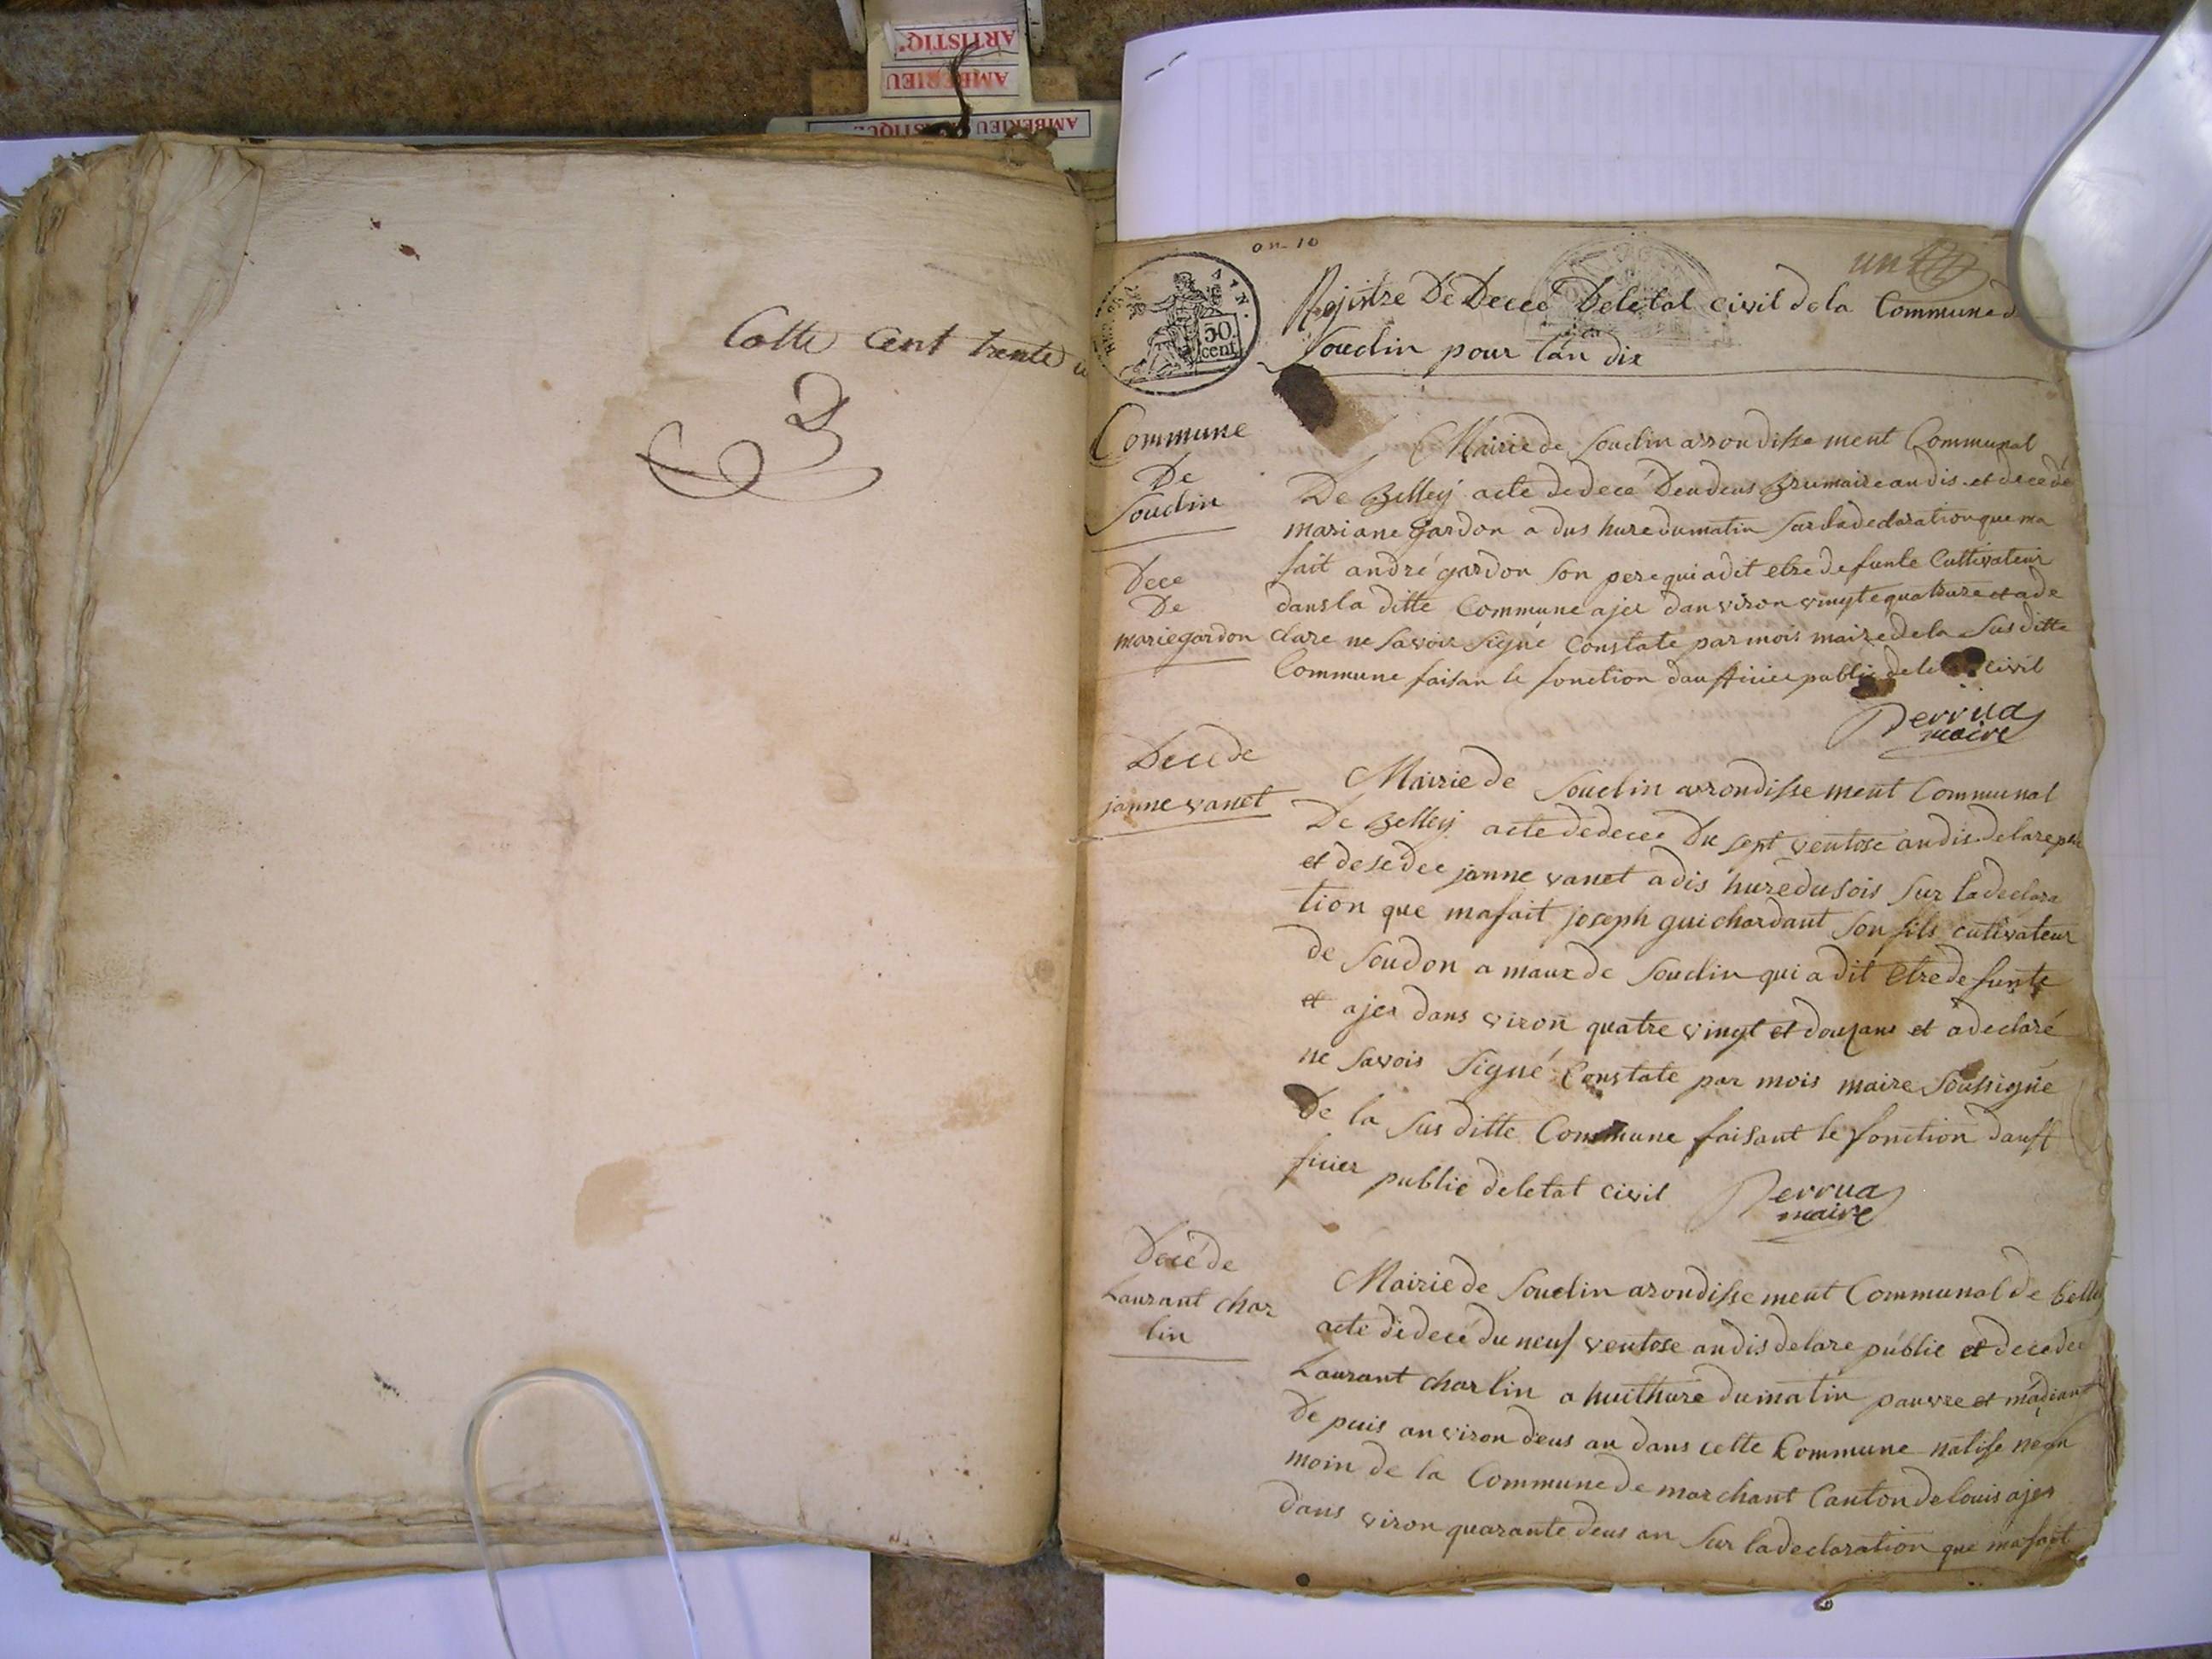 ARTISTIQ'
AMBERIEU
Cotte Cent trente
an 10
un
50
cent
Rejistre De Decee Deletat civil dela Commune d
Souclin pour lan dix
Commune
De
Souclin
Mairie de Souclin arrondissement Communal
De Belleÿ acte de decé Deudeus Brumaire an dis et decede
mariane gardon a dus hure du matin Sur la declaration que ma
Dece
De
marie gardon
fait andré gardon Son pere qui a dit etre defunte Cultivateur
dans la ditte Commune ajer danviron vingte quat hure et a de
clare ne Savoir Signé Constate par mois maire de la Sus ditte
Commune faisan le fonction daufficier public delet civil
Perrua
maire
Dece de
janne vanet
Mairie de Souclin arrondissement Communal
De Belleÿ acte de decee Du Sept ventose an dis de la repu
et desedee janne vanet a dis hure du sois Sur la declara
tion que ma fait joseph guichardant Son fils cultivateur
de Soudon a maux de Souclin qui a dit Etre defunte
et ajer dans viron quatre vingt et douzans et a declaré
ne Savois Signé Constate par mois maire Soussigne
De la Sus ditte Commune faisant le fonction dauf
ficier public deletat civil
Perrua
maire
Decé de
Laurant char
lin
Mairie de Souclin arondissement Communal de belleÿ
acte de decé du neuf ventose an dis de lare public et decedee
Laurant charlin a huit hure du matin pauvre et madiant
De puis anviron deus an dans cette Commune natisse nean
moin de la Commune de marchant Canton de louis ajer
dans viron quarante deus an Sur la declaration que ma fait